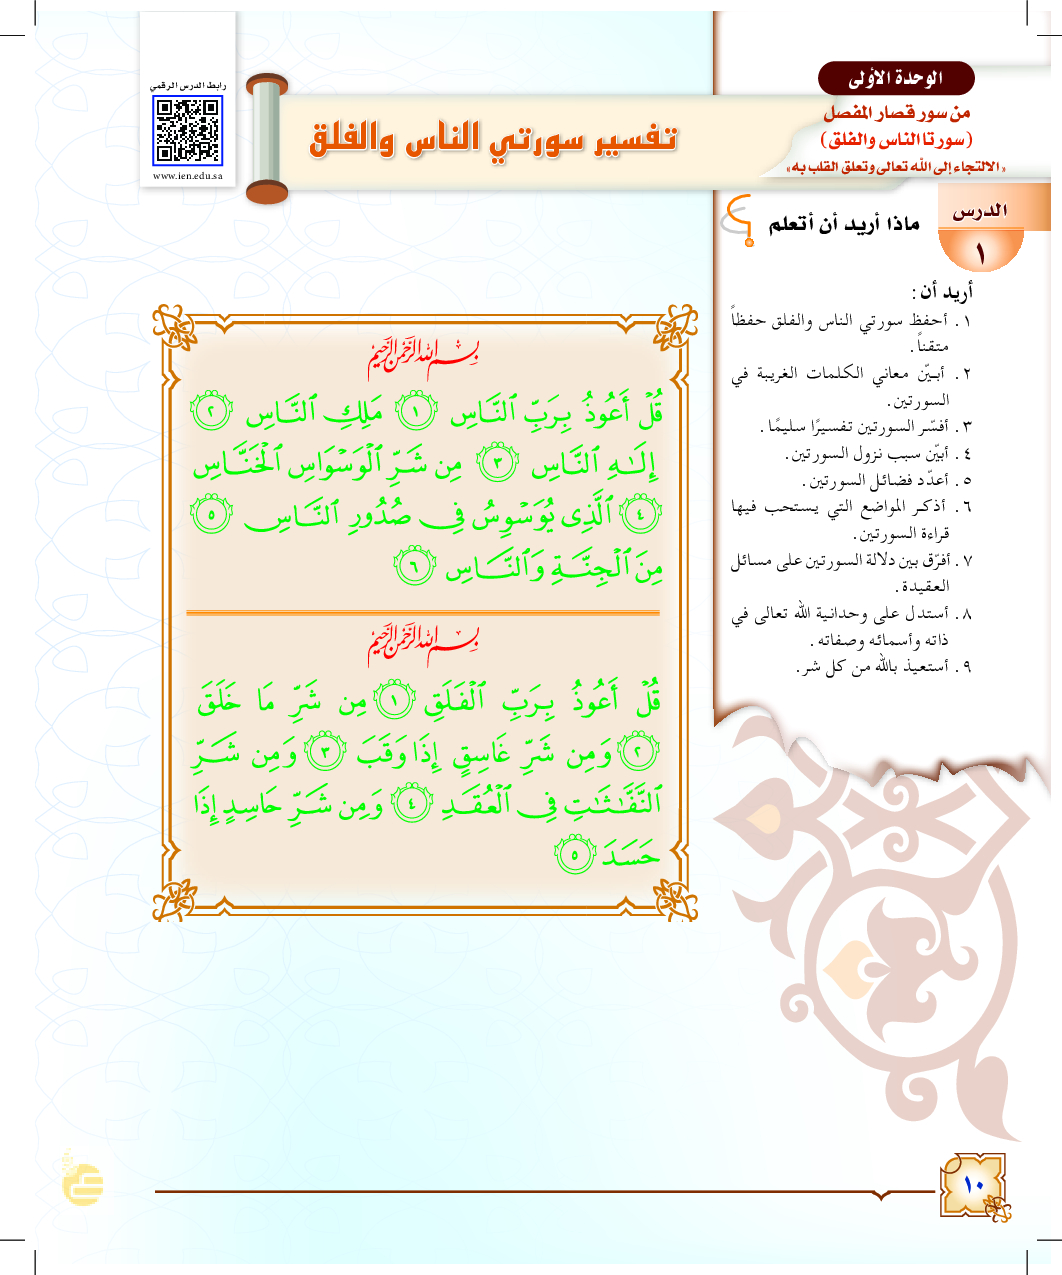 الوحدة الأولى
من سور قصار المفصل
(سورتا الناس والفلق)
«الالتجاء إلى الله تعالى وتعلق القلب به»
رابط الدرس الرقمي
www.ien.edu.sa
تفسير سورتي الناس والفلق
الدرس
١
ماذا أريد أن أتعلم
أريد أن :
١. أحفظ سورتي الناس والفلق حفظاً
متقناً.
٢. أبيّن معاني الكلمات الغريبة في
السورتين.
٣. أفسّر السورتين تفسيرًا سليمًا .
٤. أبيّن سبب نزول السورتين.
٥. أعدّد فضائل السورتين.
٦. أذكر المواضع التي يستحب فيها
قراءة السورتين.
٧. أفرّق بين دلالة السورتين على مسائل
العقيدة .
٨. أستدل على وحدانية الله تعالى في
ذاته وأسمائه وصفاته .
٩. أستعيذ بالله من كل شر.
بِسْمِ اللَّهِ الرَّحْمَٰنِ الرَّحِيمِ
قُلۡ أَعُوذُ بِرَبِّ ٱلنَّاسِ ١ مَلِكِ ٱلنَّاسِ ٢
إِلَٰهِ ٱلنَّاسِ ٣ مِن شَرِّ ٱلۡوَسۡوَاسِ ٱلۡخَنَّاسِ
٤ ٱلَّذِي يُوَسۡوِسُ فِي صُدُورِ ٱلنَّاسِ ٥
مِنَ ٱلۡجِنَّةِ وَٱلنَّاسِ ٦
بِسْمِ اللَّهِ الرَّحْمَٰنِ الرَّحِيمِ
قُلۡ أَعُوذُ بِرَبِّ ٱلۡفَلَقِ ١ مِن شَرِّ مَا خَلَقَ
٢ وَمِن شَرِّ غَاسِقٍ إِذَا وَقَبَ ٣ وَمِن شَرِّ
ٱلنَّفَّٰثَٰتِ فِي ٱلۡعُقَدِ ٤ وَمِن شَرِّ حَاسِدٍ إِذَا
حَسَدَ ٥
١٠